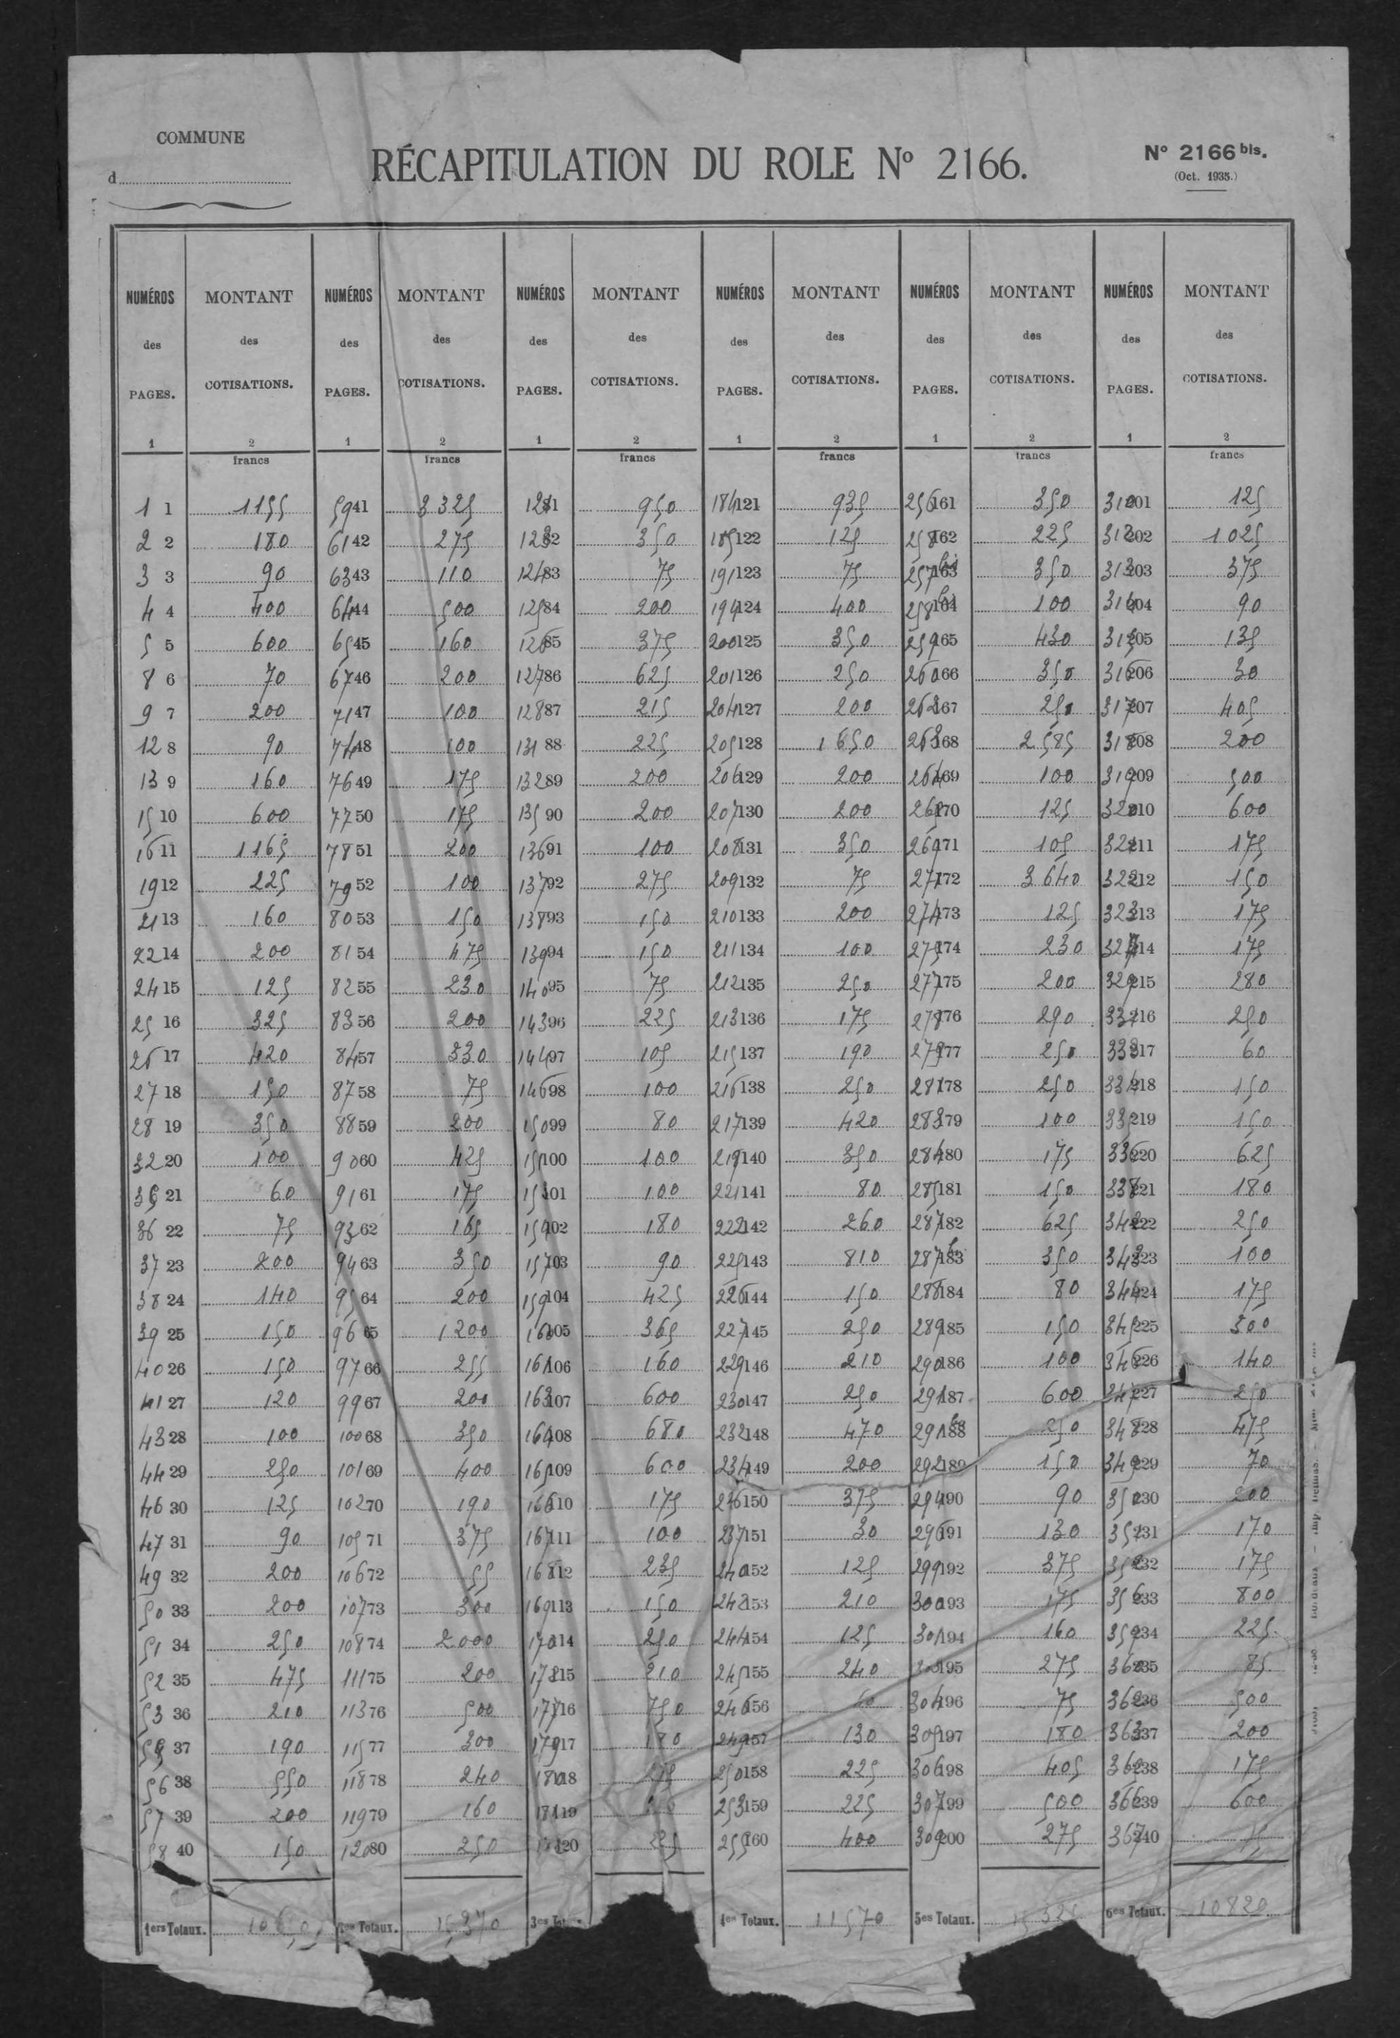 COMMUNE
d
RÉCAPITULATION DU ROLE No 2166.
No 2166 bis.
(Oct. 1935.)
NUMÉROS MONTANT NUMÉROS MONTANT NUMÉROS MONTANT NUMÉROS MONTANT NUMÉROS MONTANT NUMÉROS MONTANT
des des des des des des des des des des des des
PAGES. COTISATIONS. PAGES. COTISATIONS. PAGES. COTISATIONS. PAGES. COTISATIONS. PAGES. COTISATIONS. PAGES. COTISATIONS.
1 2 1 2 1 2 1 2 1 2 1 2
francs francs francs francs francs francs
1 1 1155 59 41 3325 81 950 184 121 935 256 161 350 201 125
2 2 180 61 42 275 82 350 185 122 125 258 162 225 202 1025
3 3 90 63 43 110 124 83 75 191 123 75 257 163 350 313 203 375
4 4 400 64 44 500 125 84 200 194 124 400 258 164 100 204 90
5 5 600 65 45 160 126 85 375 200 125 350 259 165 430 315 205 135
8 6 70 67 46 200 127 86 625 201 126 250 260 166 350 316 206 30
9 7 200 71 47 100 128 87 215 204 127 200 262 167 250 317 207 405
12 8 90 74 48 100 131 88 225 205 128 1650 263 168 2585 318 208 200
13 9 160 76 49 175 132 89 200 206 129 200 264 169 100 319 209 500
15 10 600 77 50 175 135 90 200 207 130 200 265 170 125 320 210 600
16 11 1165 78 51 200 136 91 100 208 131 350 269 171 105 321 211 175
19 12 225 79 52 100 137 92 275 209 132 75 271 172 3640 322 212 150
21 13 160 80 53 150 138 93 150 210 133 200 274 173 125 323 213 175
22 14 200 81 54 475 139 94 150 211 134 100 275 174 230 324 214 175
24 15 125 82 55 230 140 95 75 212 135 250 277 175 200 329 215 280
25 16 325 83 56 200 143 96 225 213 136 175 278 176 290 216 250
26 17 420 84 57 330 144 97 105 215 137 190 279 177 250 333 217 60
27 18 150 87 58 75 146 98 100 216 138 250 281 178 250 334 218 150
28 19 350 88 59 200 150 99 80 217 139 420 283 179 100 335 219 150
32 20 100 90 60 425 151 100 100 219 140 350 284 180 175 336 220 625
35 21 60 91 61 175 153 101 100 221 141 80 285 181 150 338 221 180
36 22 75 93 62 165 102 180 222 142 260 287 182 625 342 222 250
37 23 200 94 63 350 157 103 90 225 143 810 287 183 350 343 223 100
38 24 140 95 64 200 159 104 425 226 144 150 288 184 80 344 224 175
39 25 150 96 65 1200 160 105 365 227 145 250 289 185 150 345 225 300
40 26 150 97 66 255 161 106 160 229 146 210 290 186 100 346 226 140
41 27 120 99 67 200 163 107 600 230 147 250 291 187 600 347 227 250
43 28 100 100 68 350 164 108 680 232 148 470 291 188 250 348 228 475
44 29 250 101 69 400 165 109 600 234 149 200 292 189 150 349 229 70
46 30 125 102 70 190 166 110 175 236 150 375 294 190 90 350 230 200
47 31 90 105 71 375 167 111 100 237 151 30 296 191 130 231 170
49 32 200 106 72 55 168 112 235 240 152 125 299 192 375 232 175
50 33 200 107 73 300 169 113 150 242 153 210 300 193 175 356 233 800
51 34 250 108 74 2000 170 114 250 244 154 125 301 194 160 359 234 225
52 35 475 111 75 200 115 210 245 155 240 195 275 360 235 85
53 36 210 113 76 500 116 750 246 156 304 196 75 362 236 500
37 190 115 77 300 179 117 180 249 157 130 305 197 180 363 237 200
56 38 550 118 78 240 180 118 275 250 158 225 306 198 405 238 175
57 39 200 119 79 160 119 253 159 225 307 199 500 366 239 600
58 40 150 120 80 250 120 255 160 400 309 200 275 367 240
1ers Totaux. 2es Totaux. 15370 3es 4es Totaux. 11570 5es Totaux. 6es Totaux. 10820